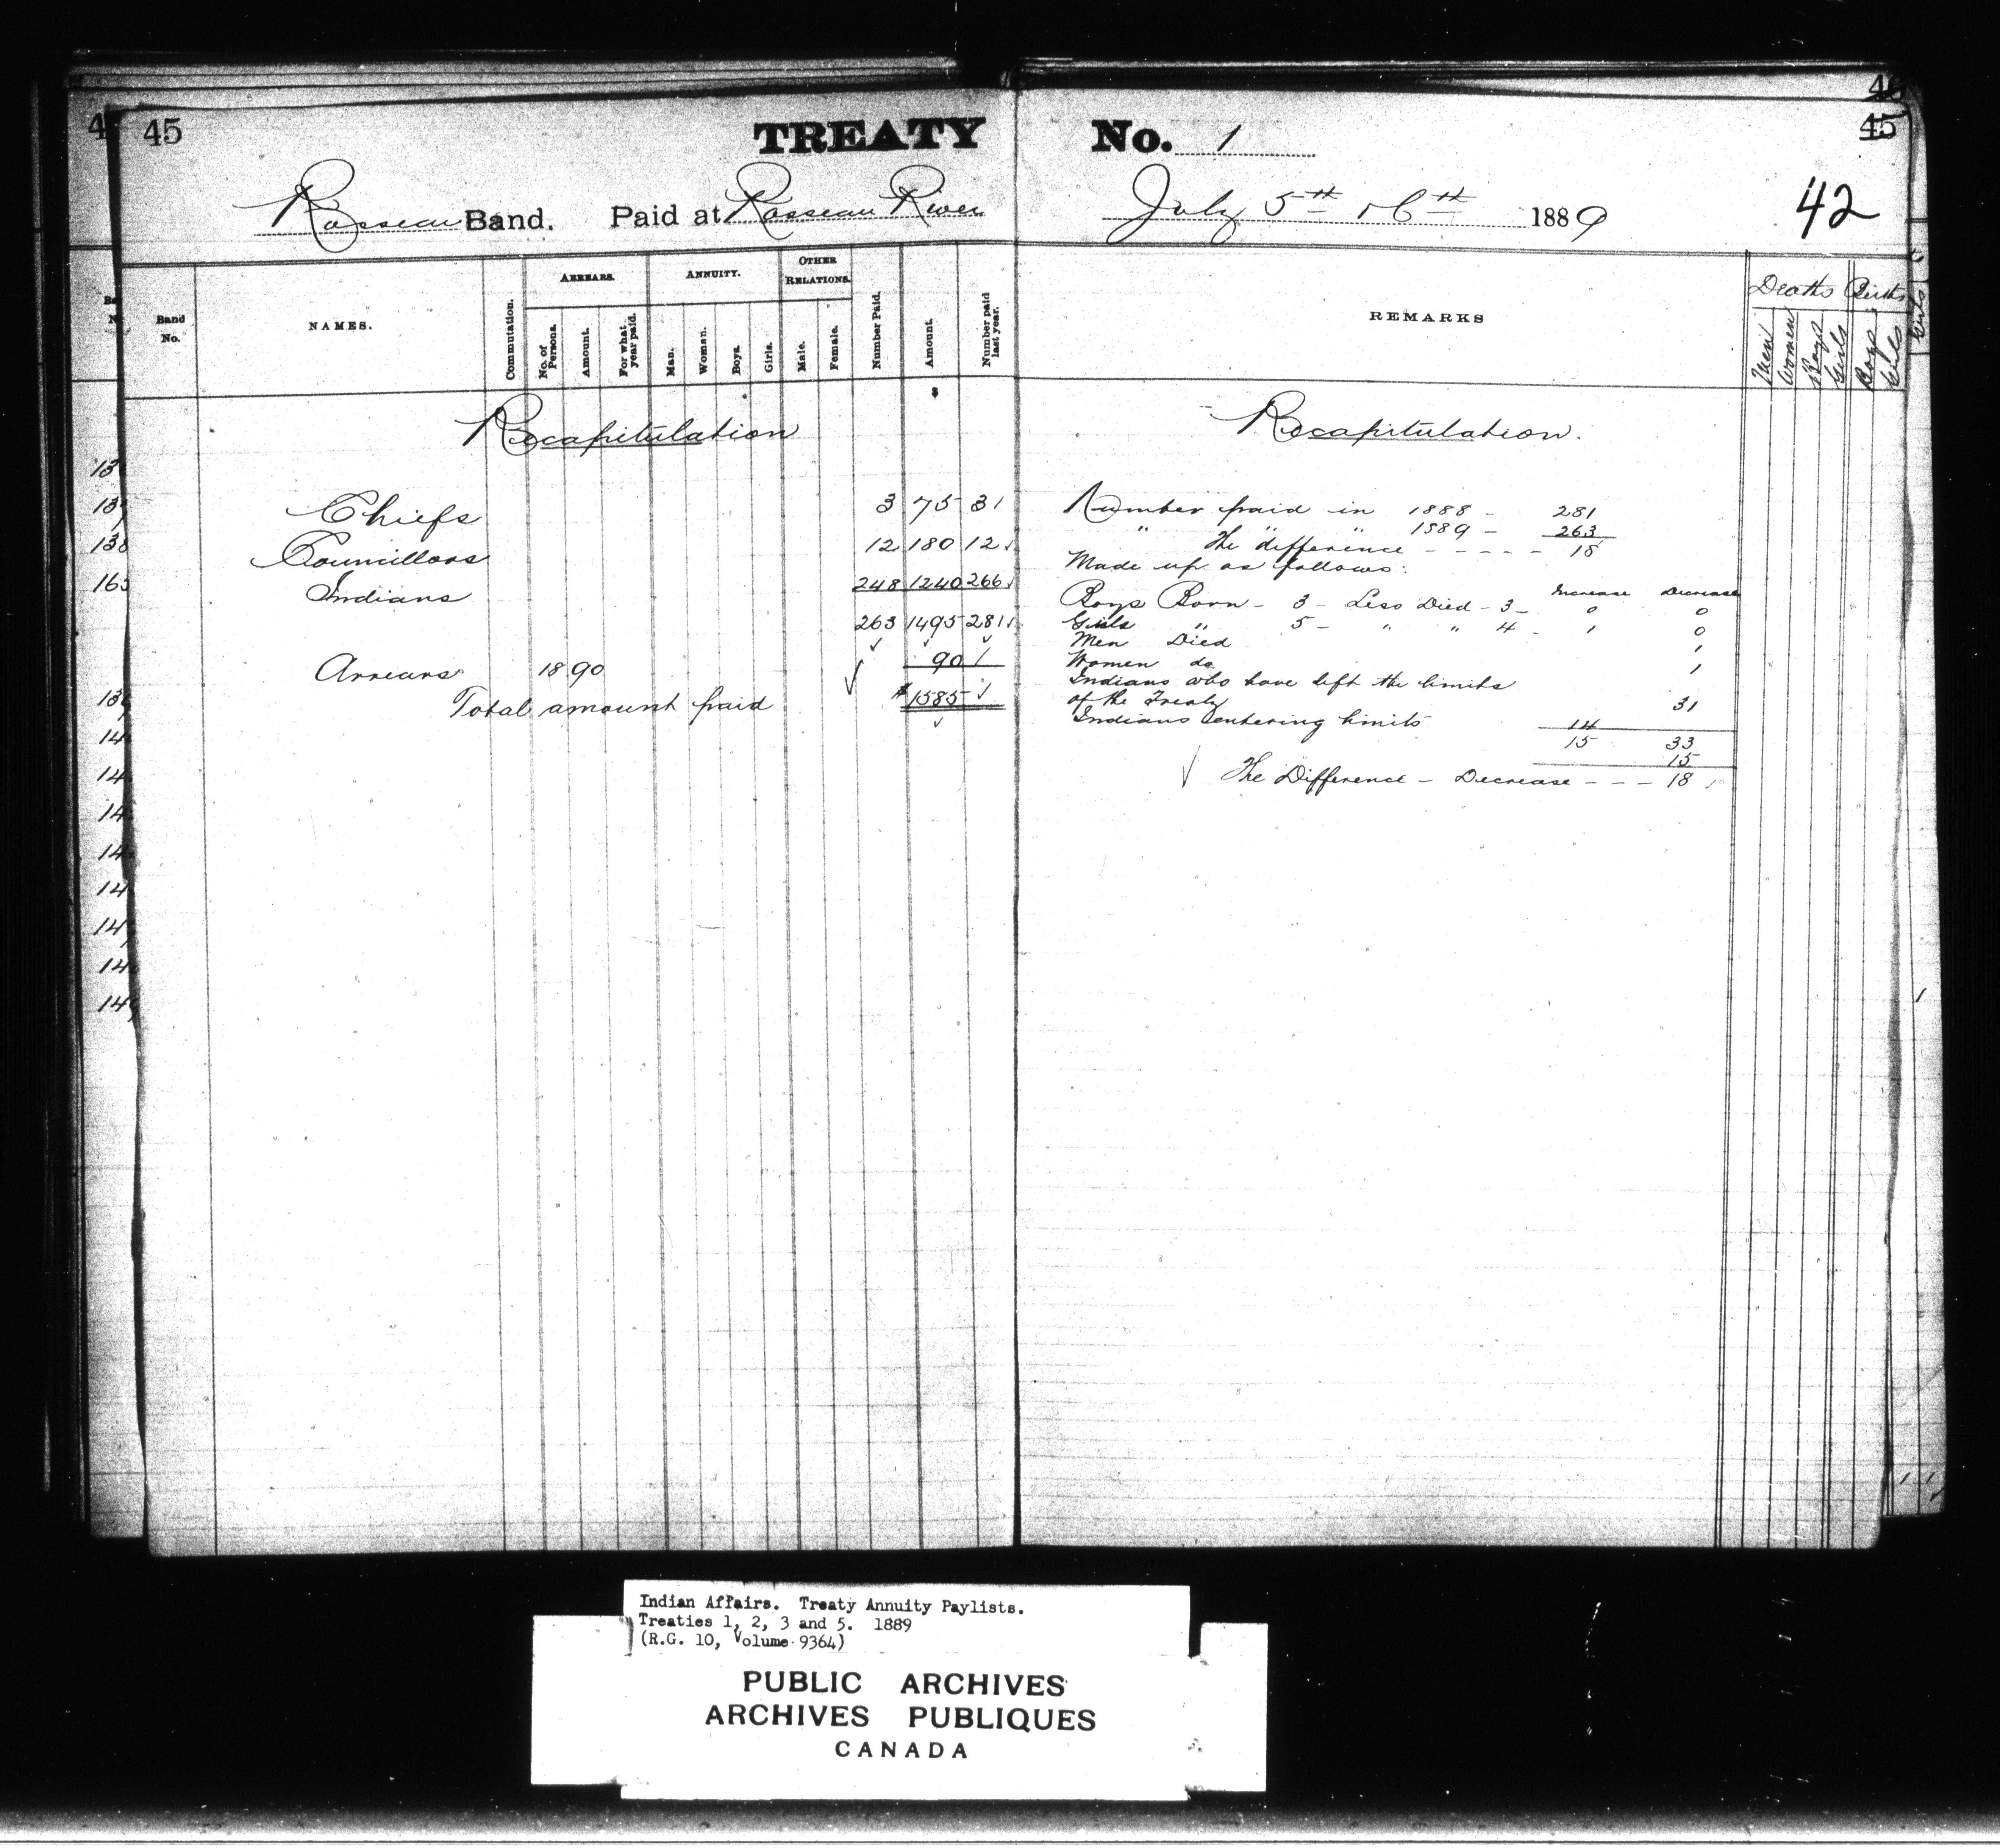 45 TREATY No. 1 45
Rosseau Band. Paid at Rosseau River July 5th & 6th 1889 42
Band No. NAMES. Commutation. ARREARS. No. of Persons. Amount. For what year paid. ANNUITY. Man. Woman. Boys. Girls. OTHER RELATIONS. Male. Female. Number Paid. Amount. Number paid last year. REMARKS Deaths Men Women Boys Girls Births Boys Girls
$
Recapitulation
Chiefs 3 75 3
Councillors 12 180 12
Indians 248 1240 266
263 1495 281
Arrears 18 90 90
Total amount paid $1585
Recapitulation.
Number paid in 1888 - 281
" " " 1889 - 263
The difference - - - - - 18
Made up as follows:
Increase Decrease
Boys Born - 3 - Less Died - 3 - 0 0
Girls " 5 - " " 4 - 1 0
Men Died 1
Women do 1
Indians who have left the limits
of the Treaty 31
Indians entering limits 14
15 33
15
The Difference - Decrease - - - 18
Indian Affairs. Treaty Annuity Paylists.
Treaties 1, 2, 3 and 5. 1889
(R.G. 10, Volume 9364)
PUBLIC ARCHIVES
ARCHIVES PUBLIQUES
CANADA